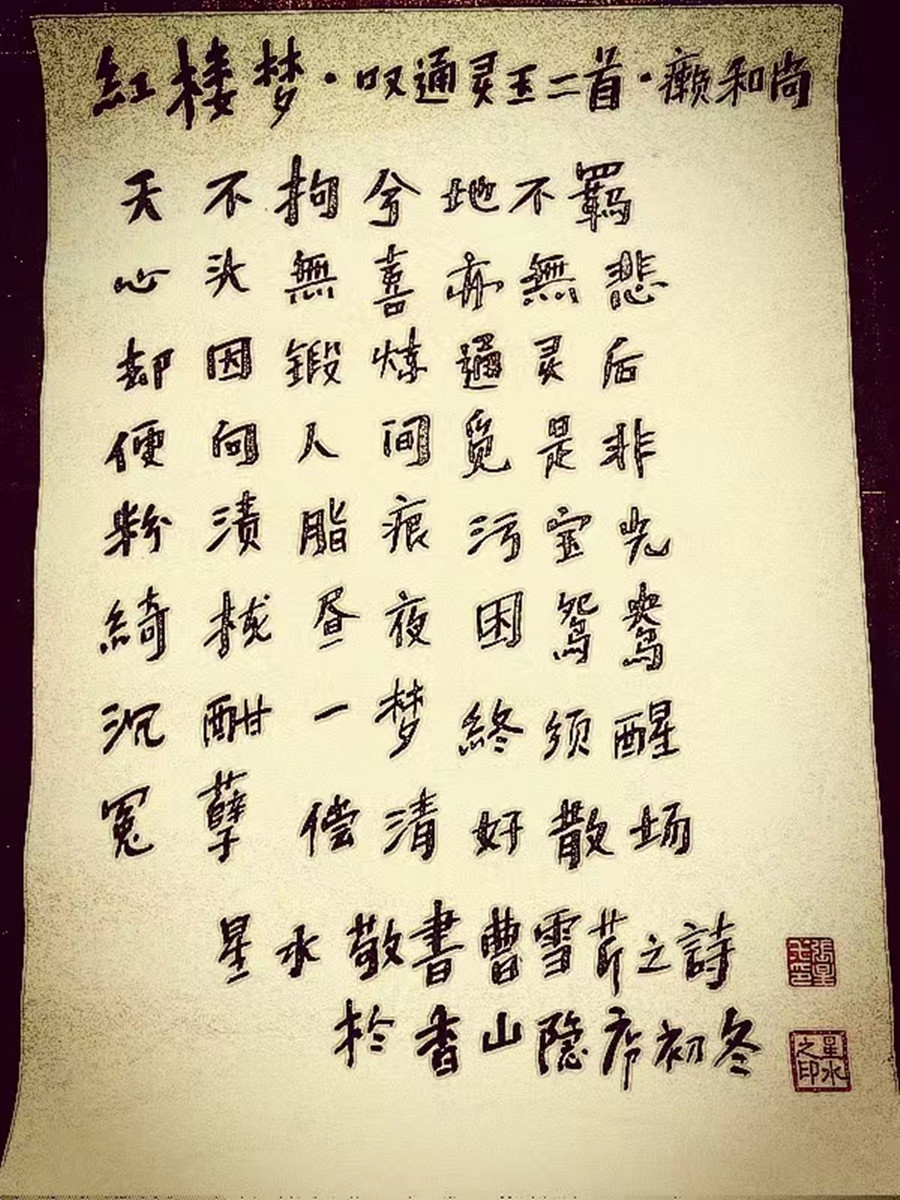 紅楼梦·叹通灵玉二首·癞和尚
天不拘兮地不羁
心头無喜亦無悲
却因鍛炼通灵后
便向人间觅是非
粉渍脂痕污宝光
綺栊昼夜困鸳鸯
沉酣一梦終须醒
冤孽偿清好散场
星水敬書曹雪芹之詩
於香山隐廬初冬
星水之印